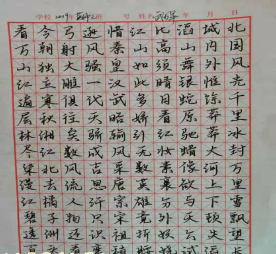 学校 2019年 号 姓名 年 月 日
北国风光千里冰封万里雪飘望长
城内外惟余莽莽大河上下顿失滔
滔山舞银蛇原驰蜡象欲与天公试
比高须晴日看红装素裹分外妖娆
江山如此多娇引无数英雄竞折腰
惜秦皇汉武略输文采唐宗宋祖稍
逊风骚一代天骄成吉思汗只识弯
弓射大雕俱往矣数风流人物还看
今朝独立寒秋湘江北去橘子洲
看万山红遍层林尽染漫江碧透百